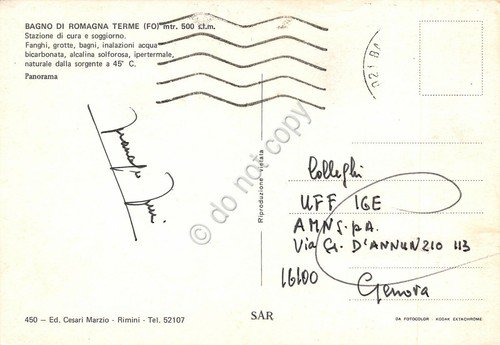 BAGNO DI ROMAGNA TERME (FO) mtr. 500 s.l.m.
Stazione di cura e soggiorno.
Fanghi, grotte, bagni, inalazioni acqua
bicarbonata, alcalina solforosa, ipertermale,
naturale dalla sorgente a 45° C.
Panorama
Riproduzione vietata
Colleghi
UFF IGE
AMN S.p.A.
Via G. D'ANNUNZIO 113
16100 Genova
450 - Ed. Cesari Marzio - Rimini - Tel. 52107
SAR
DA FOTOCOLOR - KODAK EKTACHROME
do not copy